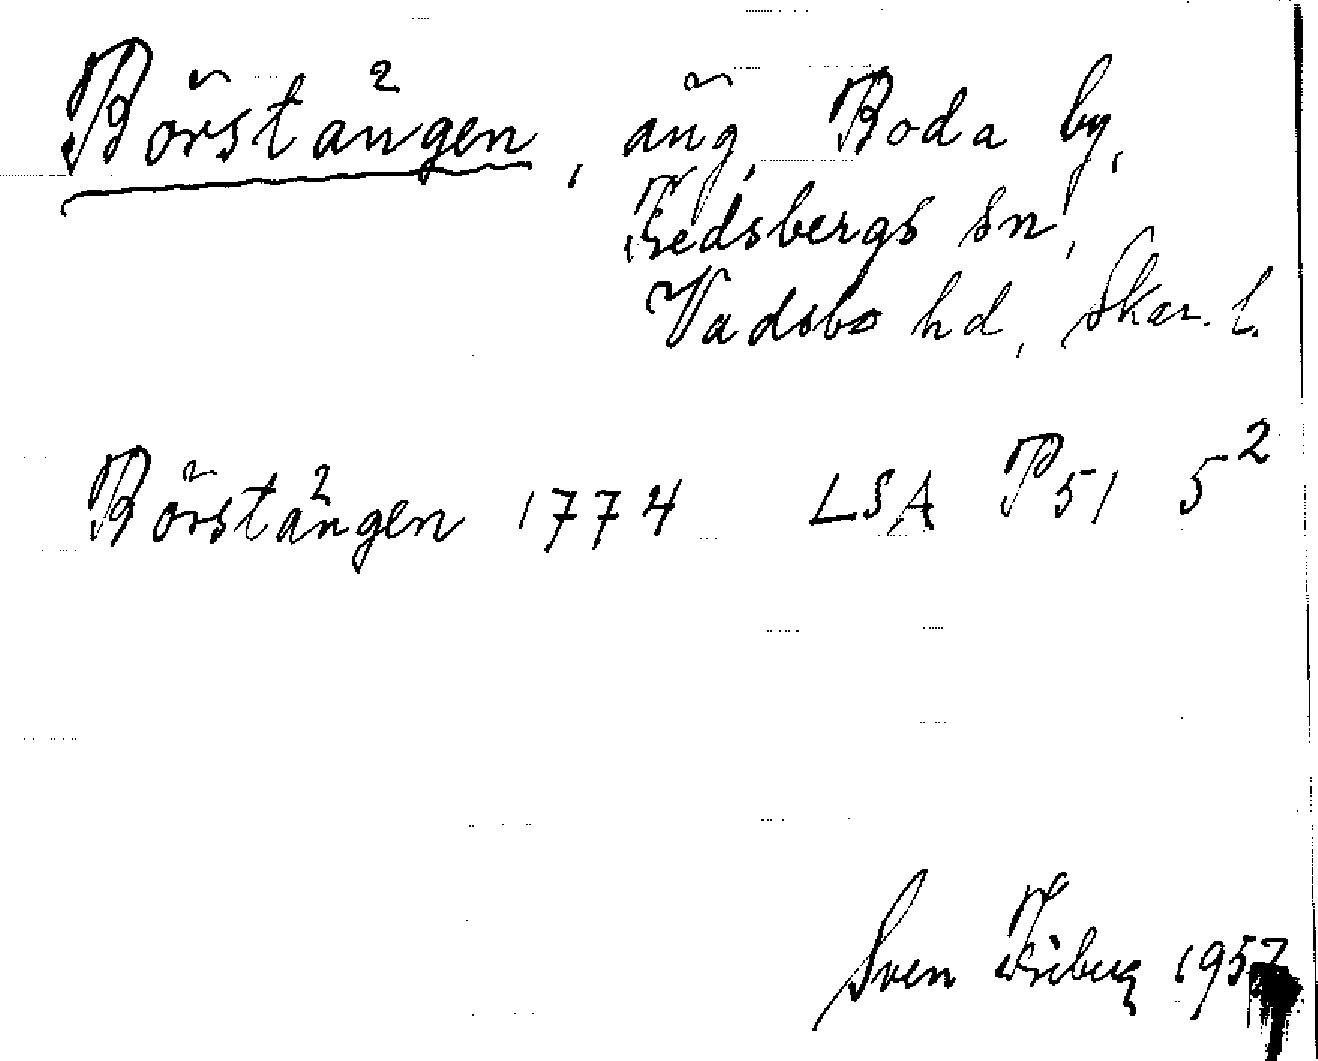 Börstängen, äng, Roda by,
Fredsbergs sn,
Vadsbo hd, Skar. l.
Börstängen 1774 LSA P51 5²
Sven Friberg 1957